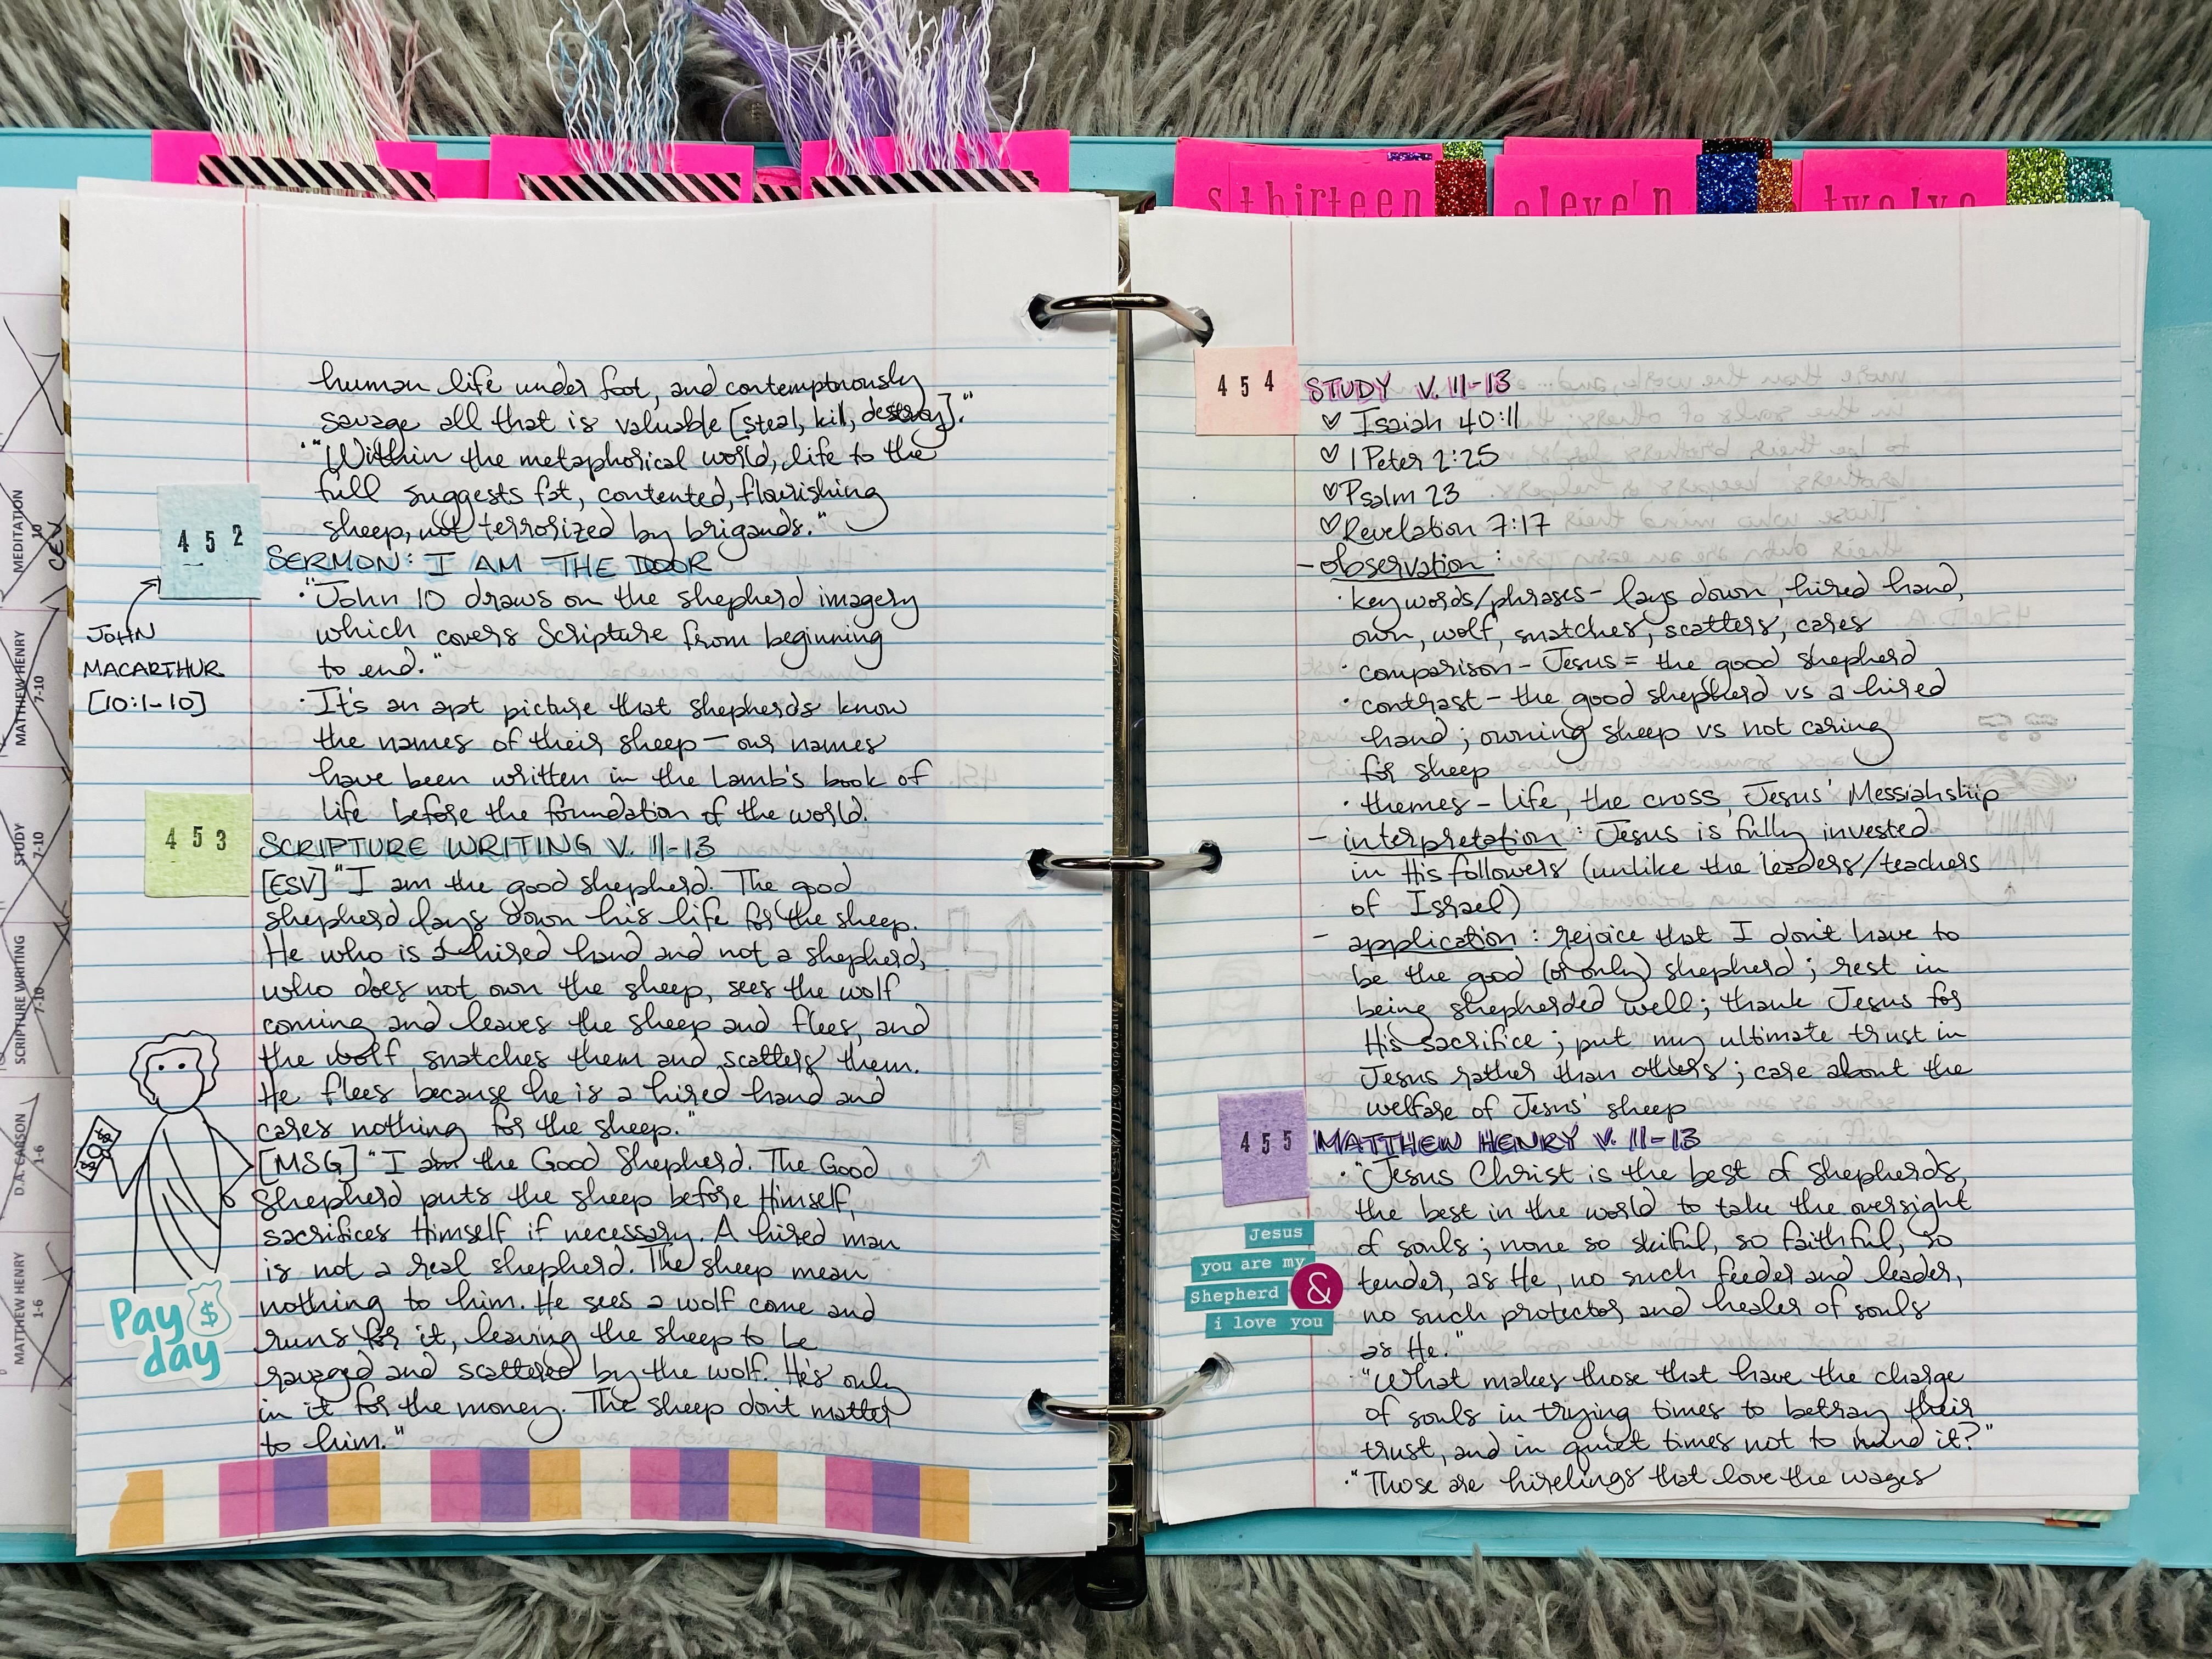 s thirteen
eleven
twelve
MEDITATION
10
CEV
MATTHEW HENRY
7-10
STUDY
7-10
SCRIPTURE WRITING
7-10
D.A. CARSON
1-6
MATTHEW HENRY
1-6
human life under foot, and contemptuously
savage all that is valuable [steal, kill, destroy]."
· "Within the metaphorical world, life to the
full suggests fat, contented, flourishing
sheep, not terrorized by brigands."
452
SERMON: I AM THE DOOR
JOHN
MACARTHUR
[10:1-10]
· "John 10 draws on the shepherd imagery
which covers Scripture from beginning
to end."
· It's an apt picture that shepherds know
the names of their sheep – our names
have been written in the Lamb's book of
life before the foundation of the world.
453
SCRIPTURE WRITING V. 11-13
[ESV] "I am the good shepherd. The good
shepherd lays down his life for the sheep.
He who is a hired hand and not a shepherd,
who does not own the sheep, sees the wolf
coming and leaves the sheep and flees, and
the wolf snatches them and scatters them.
He flees because he is a hired hand and
cares nothing for the sheep."
[MSG] "I am the Good Shepherd. The Good
Shepherd puts the sheep before Himself,
sacrifices Himself if necessary. A hired man
is not a real shepherd. The sheep mean
nothing to him. He sees a wolf come and
runs for it, leaving the sheep to be
ravaged and scattered by the wolf. He's only
in it for the money. The sheep don't matter
to him."
Pay
$
day
454
STUDY V. 11-13
♡ Isaiah 40:11
♡ 1 Peter 2:25
♡ Psalm 23
♡ Revelation 7:17
– observation :
· key words/phrases – lays down, hired hand,
own, wolf, snatches, scatters, cares
· comparison – Jesus = the good shepherd
· contrast – the good shepherd vs a hired
hand; owning sheep vs not caring
for sheep
· themes – life, the cross, Jesus' Messiahship
– interpretation : Jesus is fully invested
in His followers (unlike the leaders/teachers
of Israel)
– application : rejoice that I don't have to
be the good (or only) shepherd; rest in
being shepherded well; thank Jesus for
His sacrifice; put my ultimate trust in
Jesus rather than others; care about the
welfare of Jesus' sheep
455
MATTHEW HENRY V. 11-13
· "Jesus Christ is the best of shepherds,
the best in the world to take the oversight
of souls; none so skilful, so faithful, so
tender, as He, no such feeder and leader,
no such protector and healer of souls
as He."
Jesus
you are my
shepherd &
i love you
· "What makes those that have the charge
of souls in trying times to betray their
trust, and in quiet times not to mind it?"
· "Those are hirelings that love the wages